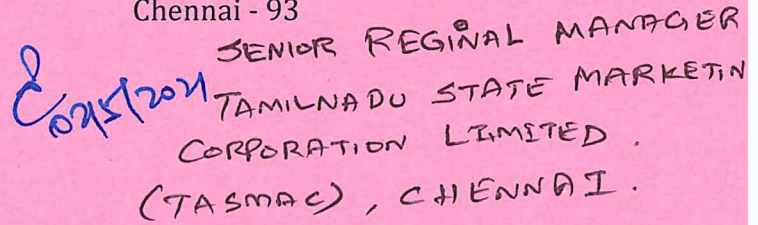 Chennai - 93
SENIOR REGINAL MANAGER
TAMILNADU STATE MARKETIN
CORPORATION LIMITED.
(TASMAC), CHENNAI.